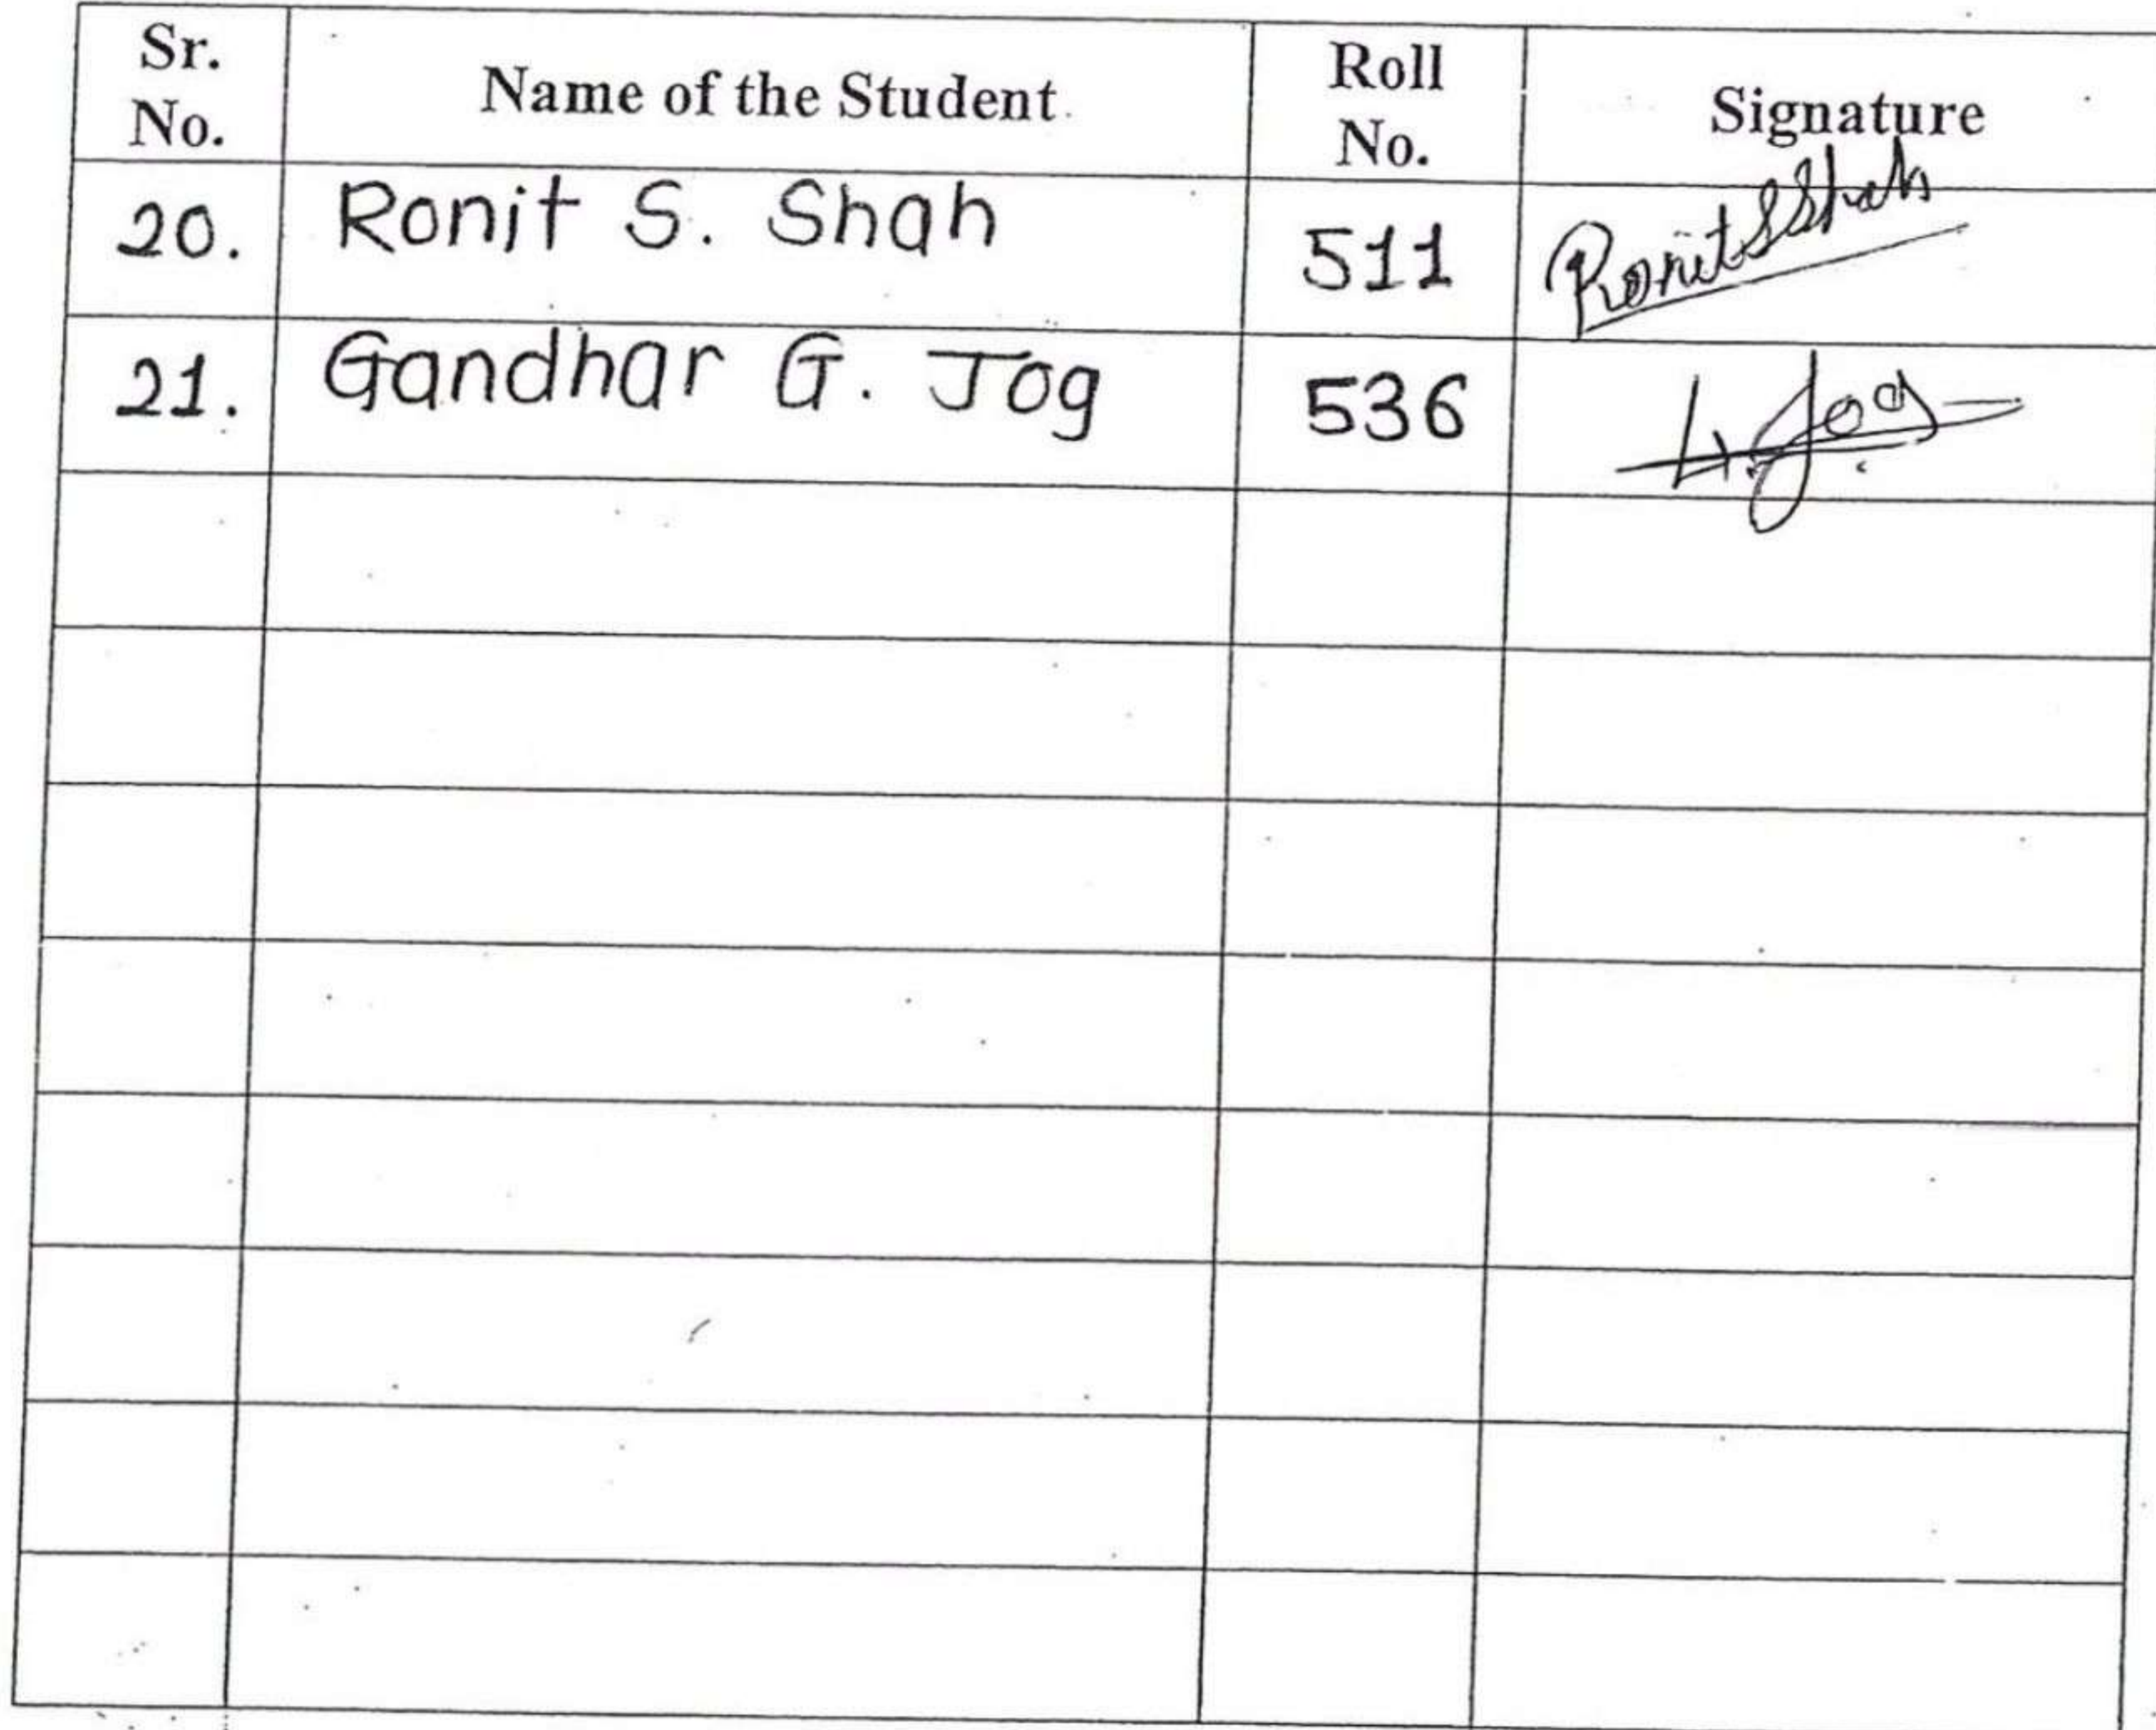 Sr. No. Name of the Student Roll No. Signature
20. Ronit S. Shah 511 Ronit S Shah
21. Gandhar G. Jog 536 Jog